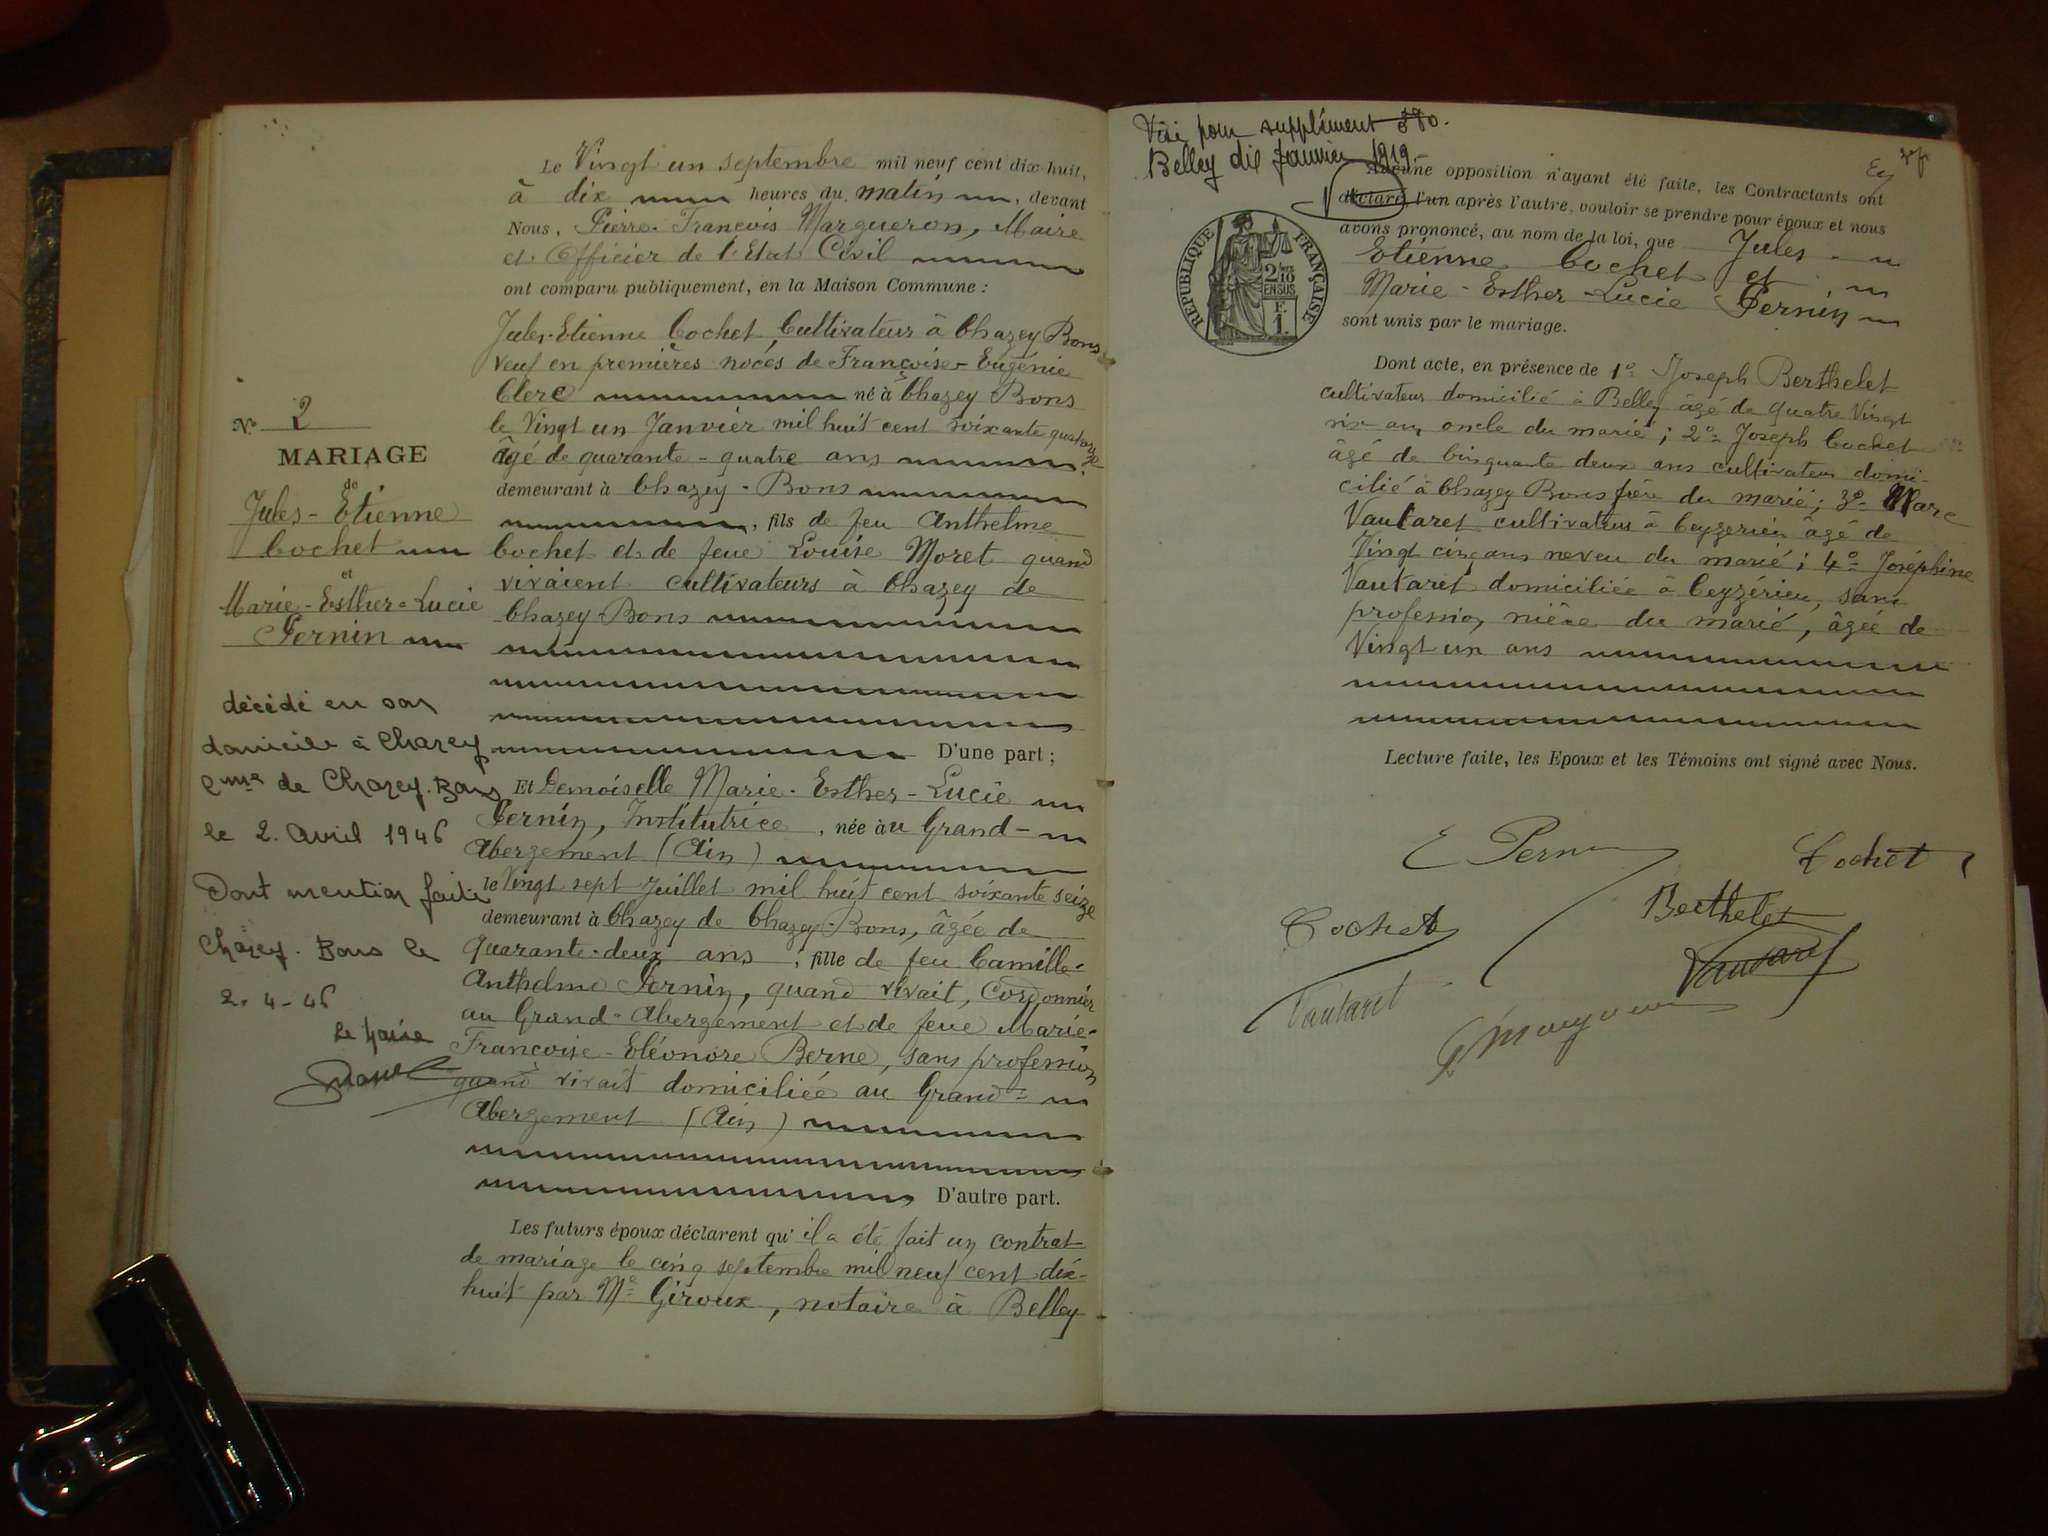 Le Vingt un septembre mil neuf cent dix-huit,
à dix heures du matin, devant
Nous, Pierre-François Margueron, Maire
et Officier de l'Etat Civil
ont comparu publiquement, en la Maison Commune :
Jules-Etienne Cochet, Cultivateur à Chazey Bons
Veuf en premières noces de Françoise-Eugénie
Clerc né à Chazey Bons
le Vingt un Janvier mil huit cent soixante quatorze
âgé de quarante-quatre ans
demeurant à Chazey-Bons
, fils de feu Anthelme
Cochet et de feue Louise Moret quand
vivaient cultivateurs à Chazey de
Chazey-Bons
D'une part ;
Et Demoiselle Marie-Esther-Lucie
Pernin, Institutrice, née àu Grand-
Abergement (Ain)
le Vingt sept Juillet mil huit cent soixante seize
demeurant à Chazey de Chazey-Bons, âgée de
quarante-deux ans, fille de feu Camille-
Anthelme Pernin, quand vivait, Cordonnier
au Grand-Abergement et de feue Marie-
Françoise-Eléonore Berne, sans profession
quand vivait domiciliée au Grand-
Abergement (Ain)
D'autre part.
Les futurs époux déclarent qu'il a été fait un contrat
de mariage le cinq septembre mil neuf cent dix-
huit par Me Giroux, notaire à Belley
N° 2
MARIAGE
de
Jules-Etienne
Cochet
et
Marie-Esther-Lucie
Pernin
décédé en son
domicile à Chazey
Cme de Chazey-Bons
le 2 Avril 1946
Dont mention faite
Chazey-Bons le
2-4-46
le Maire
Visé pour supplément
Belley dix Janvier 1919
Aucune opposition n'ayant été faite, les Contractants ont
déclaré l'un après l'autre, vouloir se prendre pour époux et nous
avons prononcé, au nom de la loi, que Jules-
Etienne Cochet et
Marie-Esther-Lucie Pernin
sont unis par le mariage.
REPUBLIQUE FRANÇAISE
2/10
EN SUS
F.
1.
Dont acte, en présence de 1° Joseph Berthelet
cultivateur domicilié à Belley âgé de quatre Vingt
six ans oncle du marié ; 2° Joseph Cochet
âgé de Cinquante deux ans cultivateur domi-
cilié à Chazey Bons frère du marié ; 3° Marc
Vautaret cultivateur à Ceyzerieu âgé de
Vingt cinq ans neveu du marié ; 4° Joséphine
Vautaret domiciliée à Ceyzérieu, sans
profession, nièce du marié, âgée de
Vingt un ans
Lecture faite, les Epoux et les Témoins ont signé avec Nous.
E Pernin
Cochet
Cochet
Berthelet
Vautaret
Vautaret